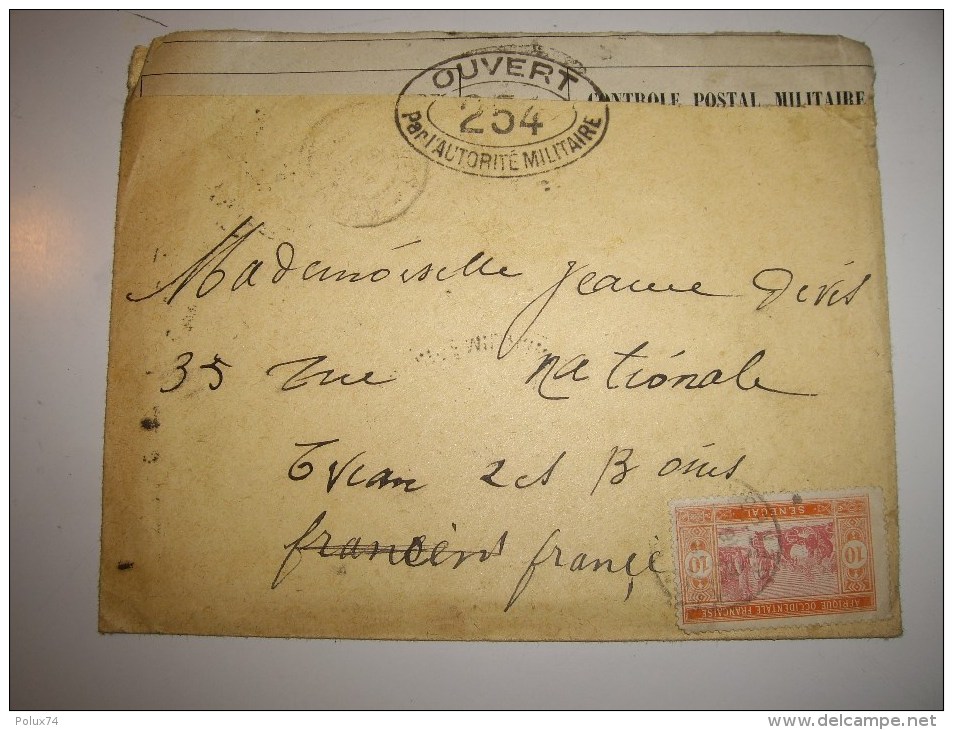 CONTROLE POSTAL MILITAIRE
OUVERT
254
Par l'AUTORITÉ MILITAIRE
Mademoiselle Jeanne
35 rue Nationale
Evian les Bains
france
SENEGAL
10 10
AFRIQUE OCCIDENTALE FRANÇAISE
Polux74
www.delcampe.net